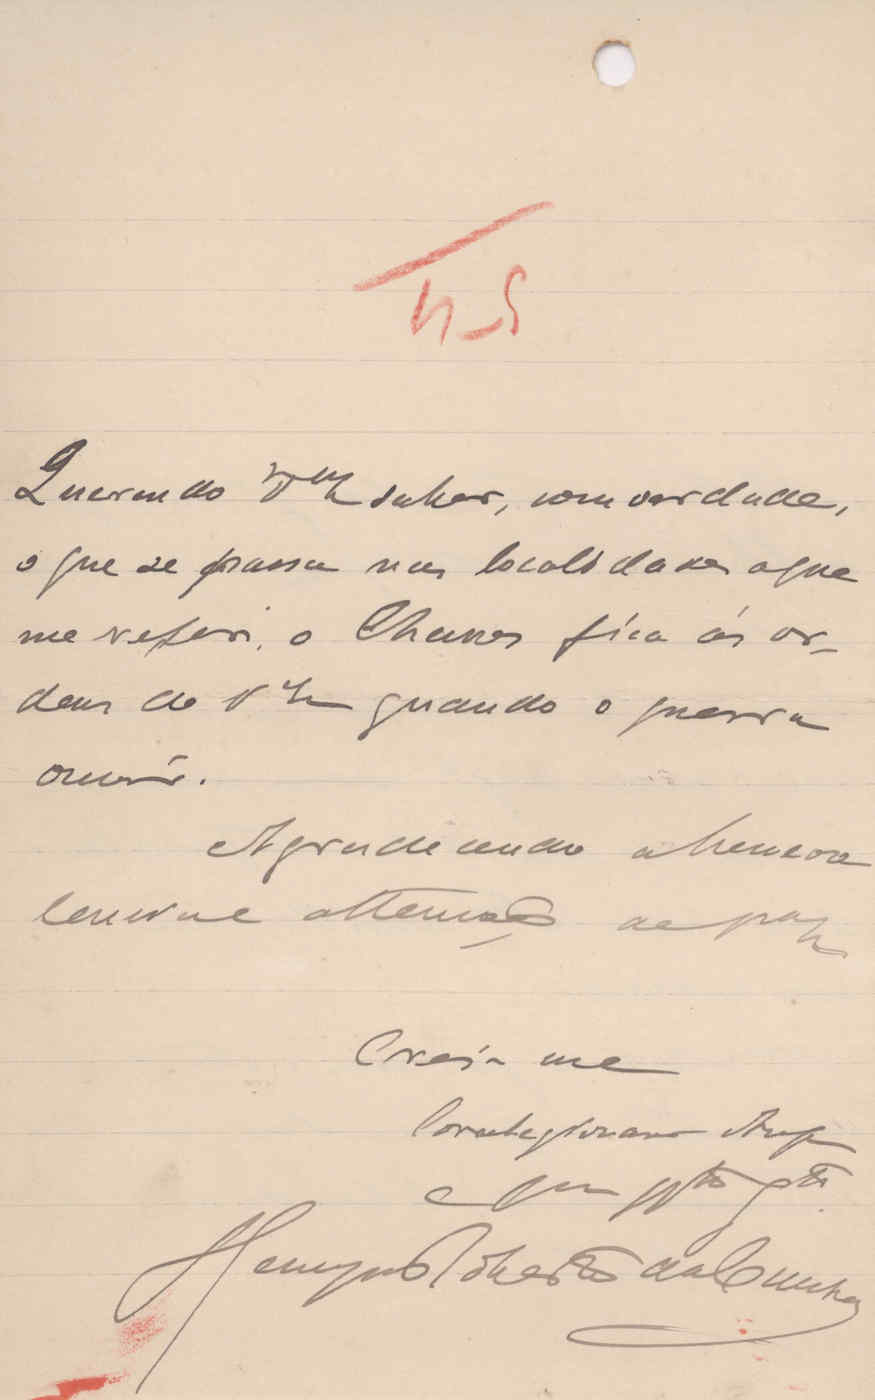 Querendo V Exª saber, com verdade,
o que se passa nas localidades a que
me referi, o Chaves fica ás or-
dens de V Exª quando o queira
ouvir.
Agradecendo a honrosa
attenção
Creia me
Correligionario Amº
e
Henrique Roberto da Cunha